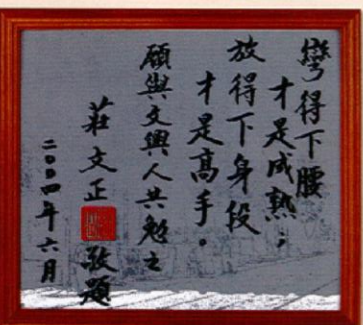 彎得下腰
才是成熟；
放得下身段
才是高手。
願與文興人共勉之
莊文正 敬題
二００四年六月